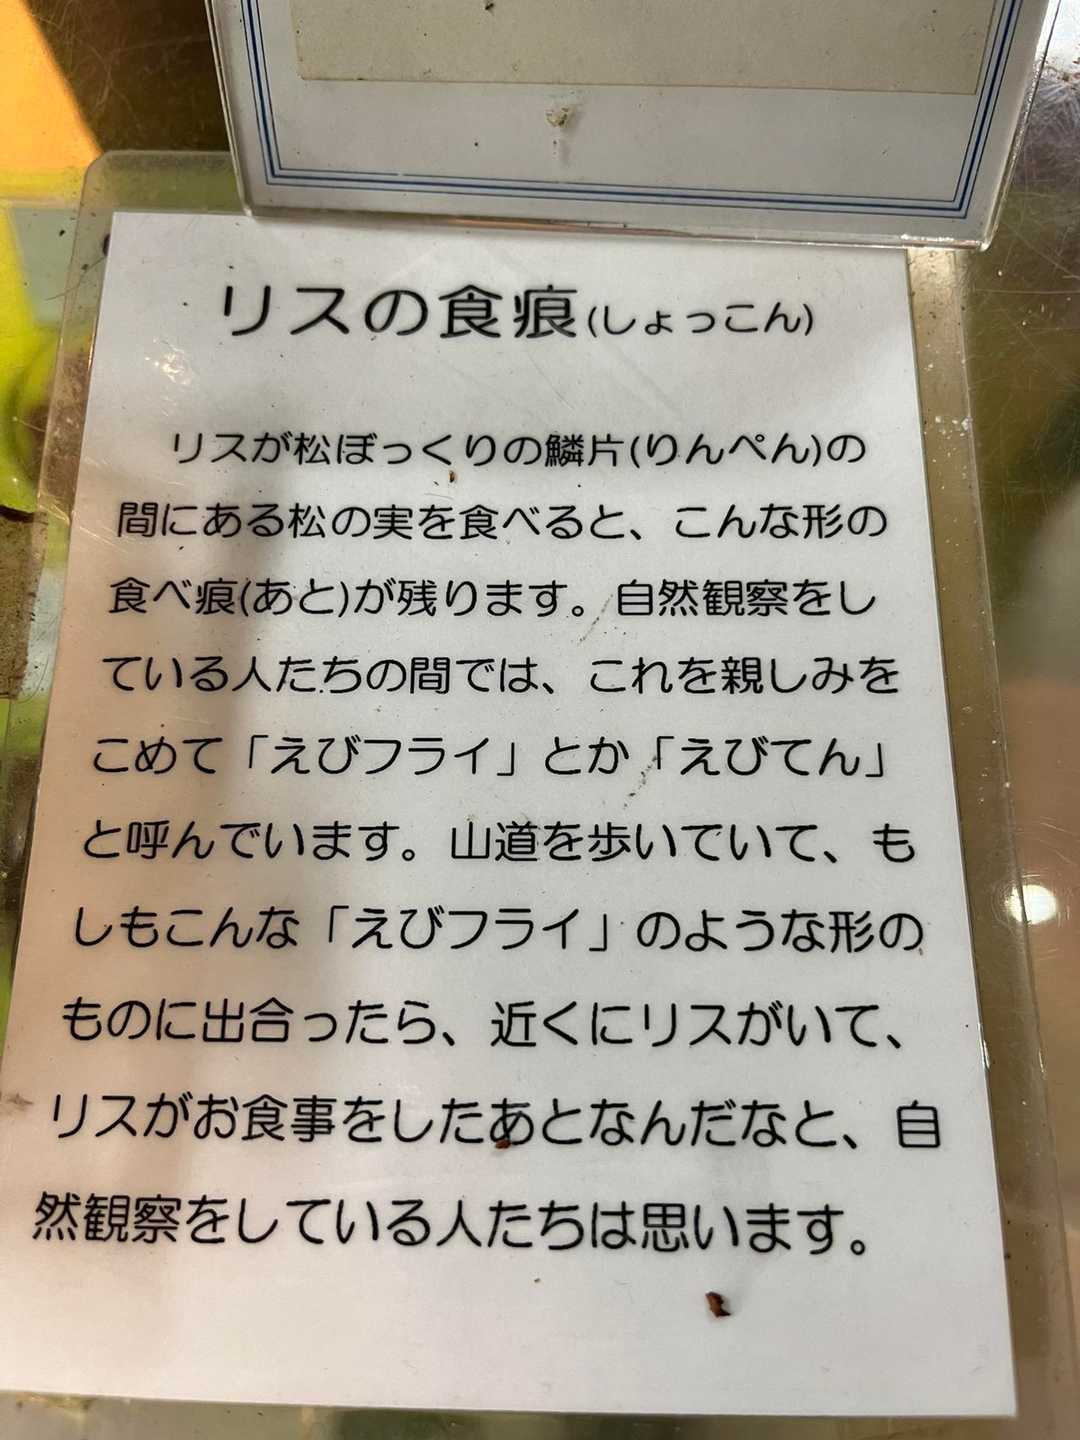 リスの食痕(しょっこん)
リスが松ぼっくりの鱗片(りんぺん)の
間にある松の実を食べると、こんな形の
食べ痕(あと)が残ります。自然観察をし
ている人たちの間では、これを親しみを
こめて「えびフライ」とか「えびてん」
と呼んでいます。山道を歩いていて、も
しもこんな「えびフライ」のような形の
ものに出合ったら、近くにリスがいて、
リスがお食事をしたあとなんだなと、自
然観察をしている人たちは思います。